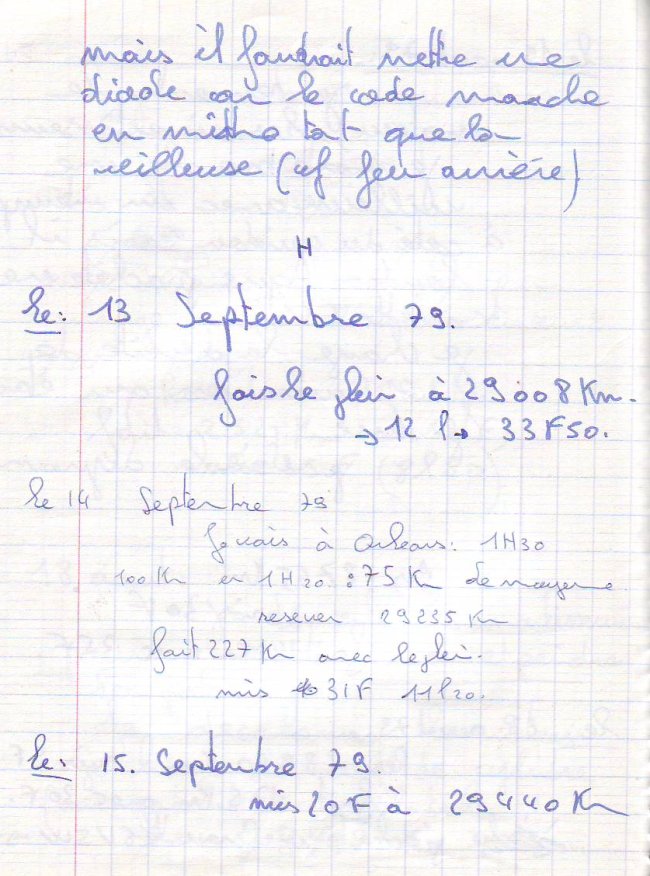 mais il faudrait mettre une
diode car le code marche
en même tant que la
veilleuse (cf feu arrière)
H
Le: 13 Septembre 79.
fais le plein à 29008 Km.
→ 12 l → 33F50.
Le 14 Septembre 79
Je vais à Orléans: 1H30
100 Km en 1H20 : 75 Km de moyenne
reserver 29235 Km
fait 227 Km avec le plein.
mis 31F 11l20.
Le: 15. Septembre 79.
mis 20F à 29440 Km